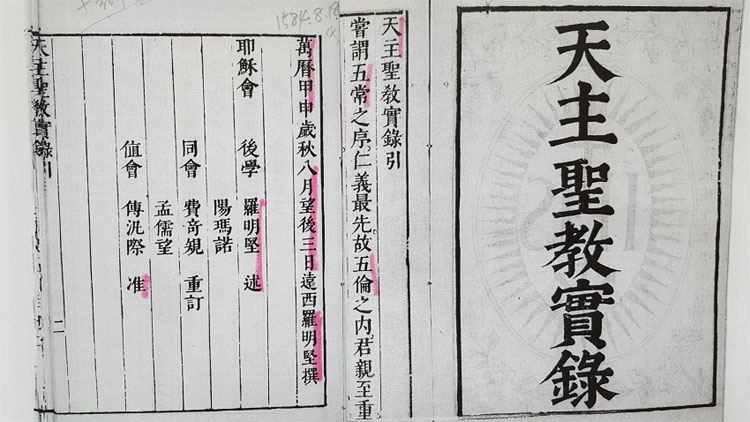 天主聖教實錄
天主聖教實錄引
嘗謂五常之序仁義最先故五倫之内君親至重
萬曆甲申歲秋八月望後三日遠西羅明堅撰
耶穌會 後學 羅明堅 述
陽瑪諾
同會 費奇規 重訂
孟儒望
值會 傅汎際 准
天主聖教實錄引
二